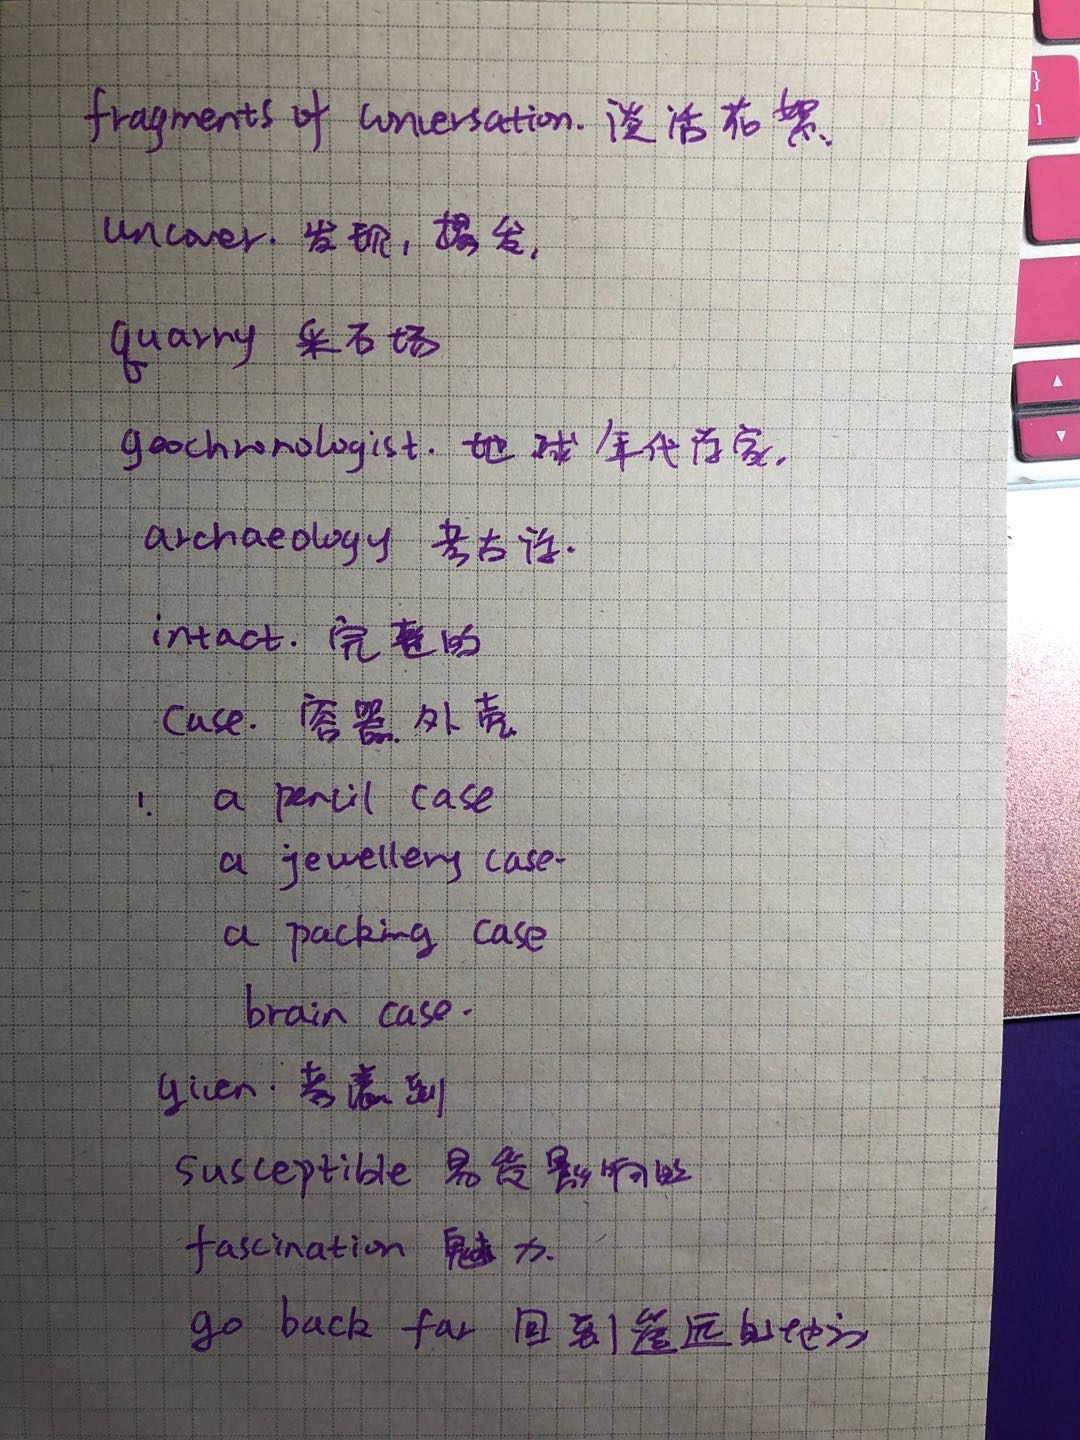 fragments of conversation. 谈话花絮.
uncover. 发现, 揭发.
quarry 采石场
geochronologist. 地球年代学家.
archaeology 考古学.
intact. 完整的
case. 容器 外壳
! a pencil case
a jewellery case.
a packing case
brain case.
given. 考虑到
susceptible 易受影响的
fascination 魅力.
go back far 回到 远的地方
}
]